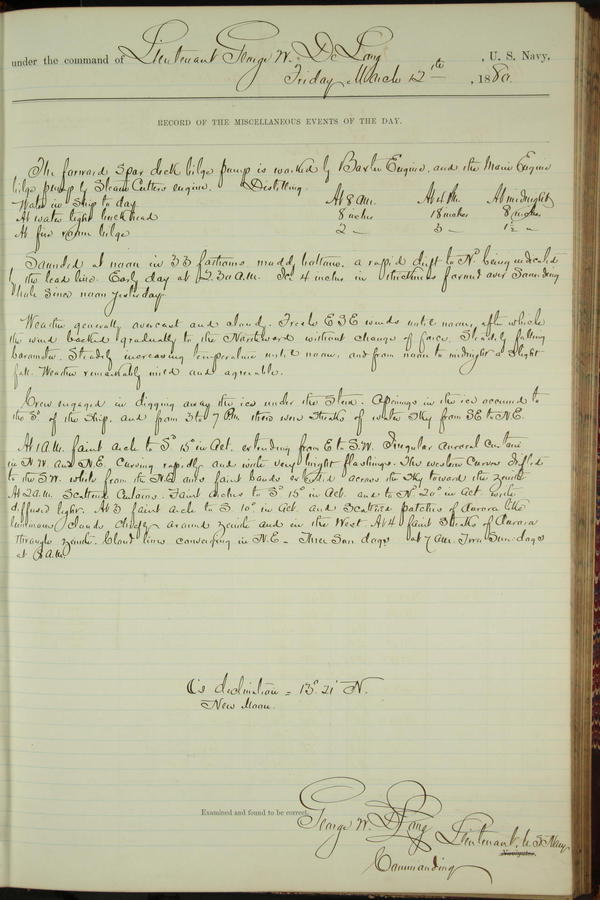 under the command of Lieutenant George W. De Long, U. S. Navy,
Friday, March 12th, 1880.
RECORD OF THE MISCELLANEOUS EVENTS OF THE DAY.
The forward spar deck bilge pump is worked by Baxter Engine, and the Main Engine
bilge pump by Steam Cutters engine. Distilling.
Water in Ship to day At 8 AM. At 4 PM. At midnight
At water tight bulkhead 8 inches 18 inches 8 inches
At fire room bilge 2 — 3 — 1½ —
Sounded at noon in 33 fathoms muddy bottom, a rapid drift to Nd being indicated
by the lead line. Early day at 2.30 a.m. Ice 4 inches in thickness formed over Sounding
Hole since noon yesterday.
Weather generally overcast and cloudy. Fresh ESE winds until noon, after which
the wind backed gradually to the Northward without change of force. Steadily falling
barometer. Steadily increasing temperature until noon, and from noon to midnight a slight
fall. Weather remarkably mild and agreeable.
Crew engaged in digging away the ice under the Stern. Openings in the ice occurred to
the Sd of the Ship, and from 3 to 7 PM there were streaks of water sky from SE to NE.
At 1 A.M. faint arch to Sd 15° in Alt. extending from E to S.W. Irregular auroral curtain
in N.W. and N.E. curving rapidly and with very bright flashings. The western curves drifted
to the S.W. while from the N.E. curves faint bands extended across the sky toward the zenith.
At 2 a.m. Scattered Curtains. Faint arches to Sd 15° in Alt. and to Nd 20° in Alt. with
diffused light. At 3 faint arch to S 10° in Alt. and Scattered patches of Aurora like
luminous clouds chiefly around zenith and in the West. At 4 faint streaks of Aurora
through zenith. Cloud lines converging in N.E. — Three Sun dogs at 7 a.m. Two Sun-dogs
at 8 a.m.
☾'s declination = 13° 21' N.
New Moon.
Examined and found to be correct.
George W. De Long Lieutenant, U.S. Navy
Navigator.
Commanding